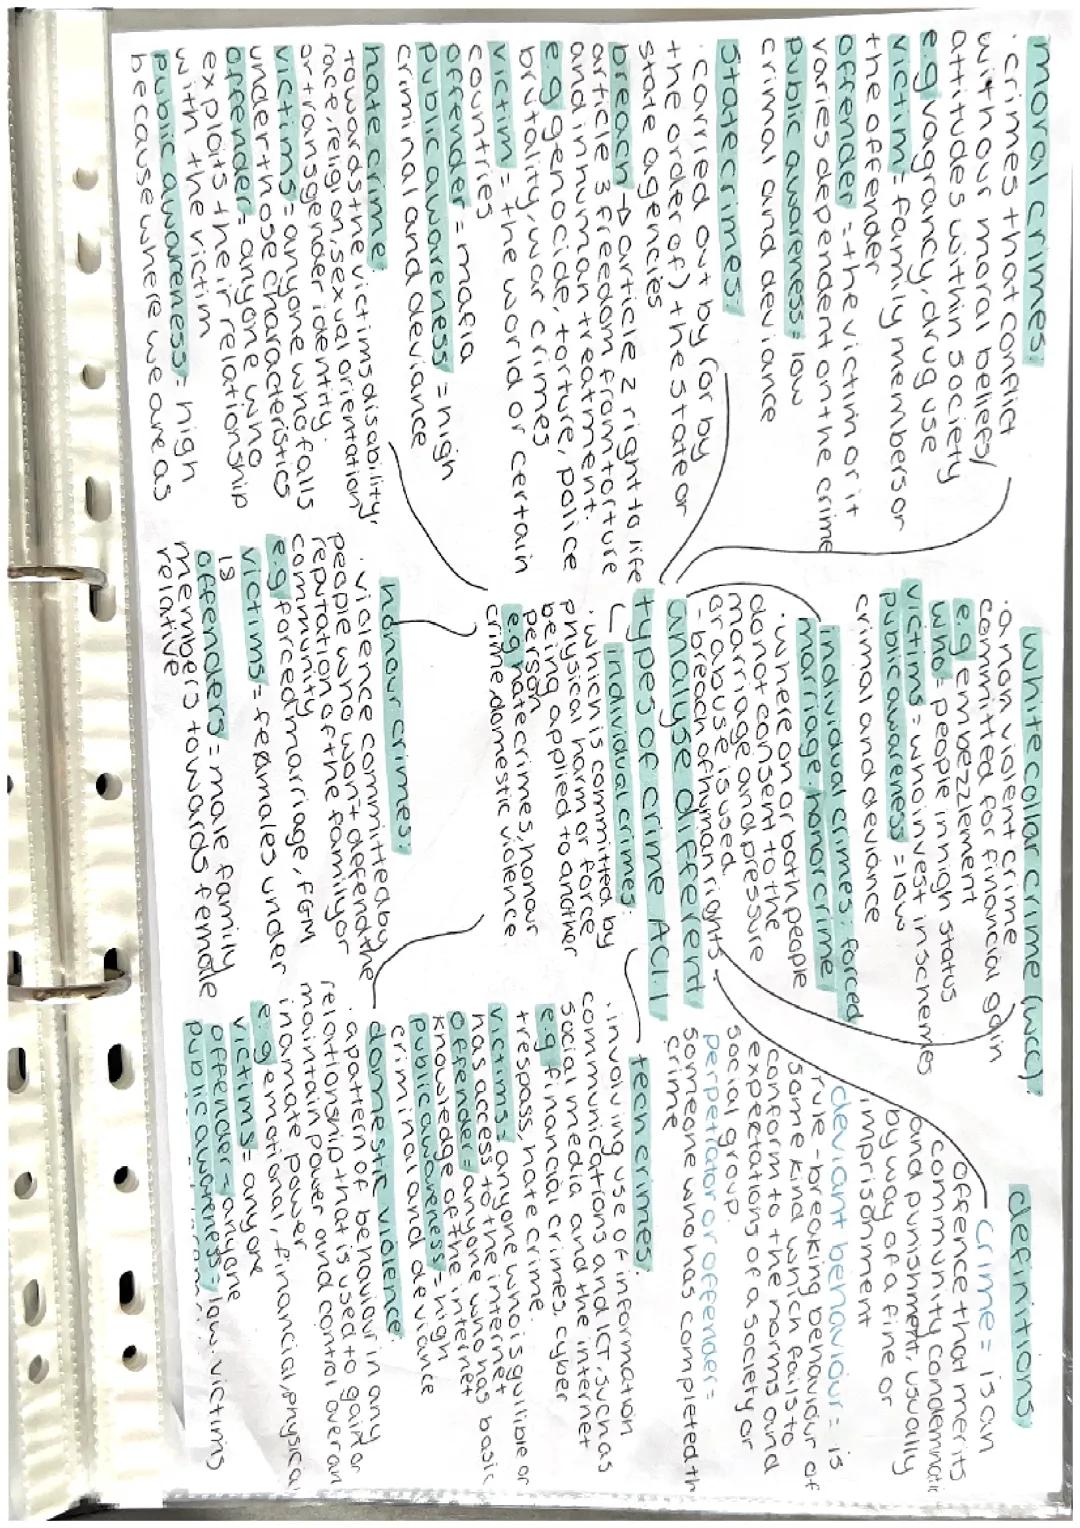 moral crimes:
· crimes that conflict
with our moral beliefs/
attitudes within society
e.g vagrancy, drug use
victim = family members or
the offender
offender = the victim or it
varies dependent on the crime
public awareness = low
crimal and deviance
state crimes:
· carried out by (or by
the order of) the state or
state agencies
breach → article 2 right to life
article 3 freedom from torture
and inhuman treatment.
e.g genocide, torture, police
brutality, war crimes
victim = the world or certain
countries
offender = mafia
public awareness = high
criminal and deviance
hate crime:
towards the victims disability,
race, religion, sexual orientation,
or transgender identity.
victims = anyone who falls
under those characteristics
offender = anyone who
exploits their relationship
with the victim
public awareness = high
because where we are as
white collar crime (wcc):
· a non violent crime
committed for financial gain
e.g embezzlement
who = people in high status
victims = who invest in schemes
public awareness = low
crimal and deviance
individual crimes: forced
marriage honor crime
· where on or both people
do not consent to the
marriage and pressure
or abuse is used.
- breach of human rights
analyse different
types of crime AC1.1
individual crimes:
· which is committed by
physical harm or force
being applied to another
person
e.g hate crimes, honour
crime, domestic violence
honour crimes:
· violence committed by
people who want defend the
reputation of the family or
community
e.g forced marriage, FGM
victims = females under
18
offenders = male family
members towards female
relative
definitions
crime = is an
offence that merits
community condemnatio
and punishment, usually
by way of a fine or
imprisonment
deviant behaviour = is
rule-breaking behaviour of
some kind which fails to
conform to the norms and
expectations of a society or
social group.
perpetrator or offender =
someone who has completed th
crime
tech crimes:
· involving use of information
communications and ICT, such as
social media and the internet
e.g financial crimes, cyber
trespass, hate crime.
victims: anyone who is gullible or
has access to the internet
offender = anyone who has basic
knowledge of the internet
public awareness = high
criminal and deviance
domestic violence:
· a pattern of behaviour in any
relationship that is used to gain or
maintain power and control over an
inamate power
e.g emotional, financial, physical
victims = anyone
offender = anyone
public awareness = low. victims